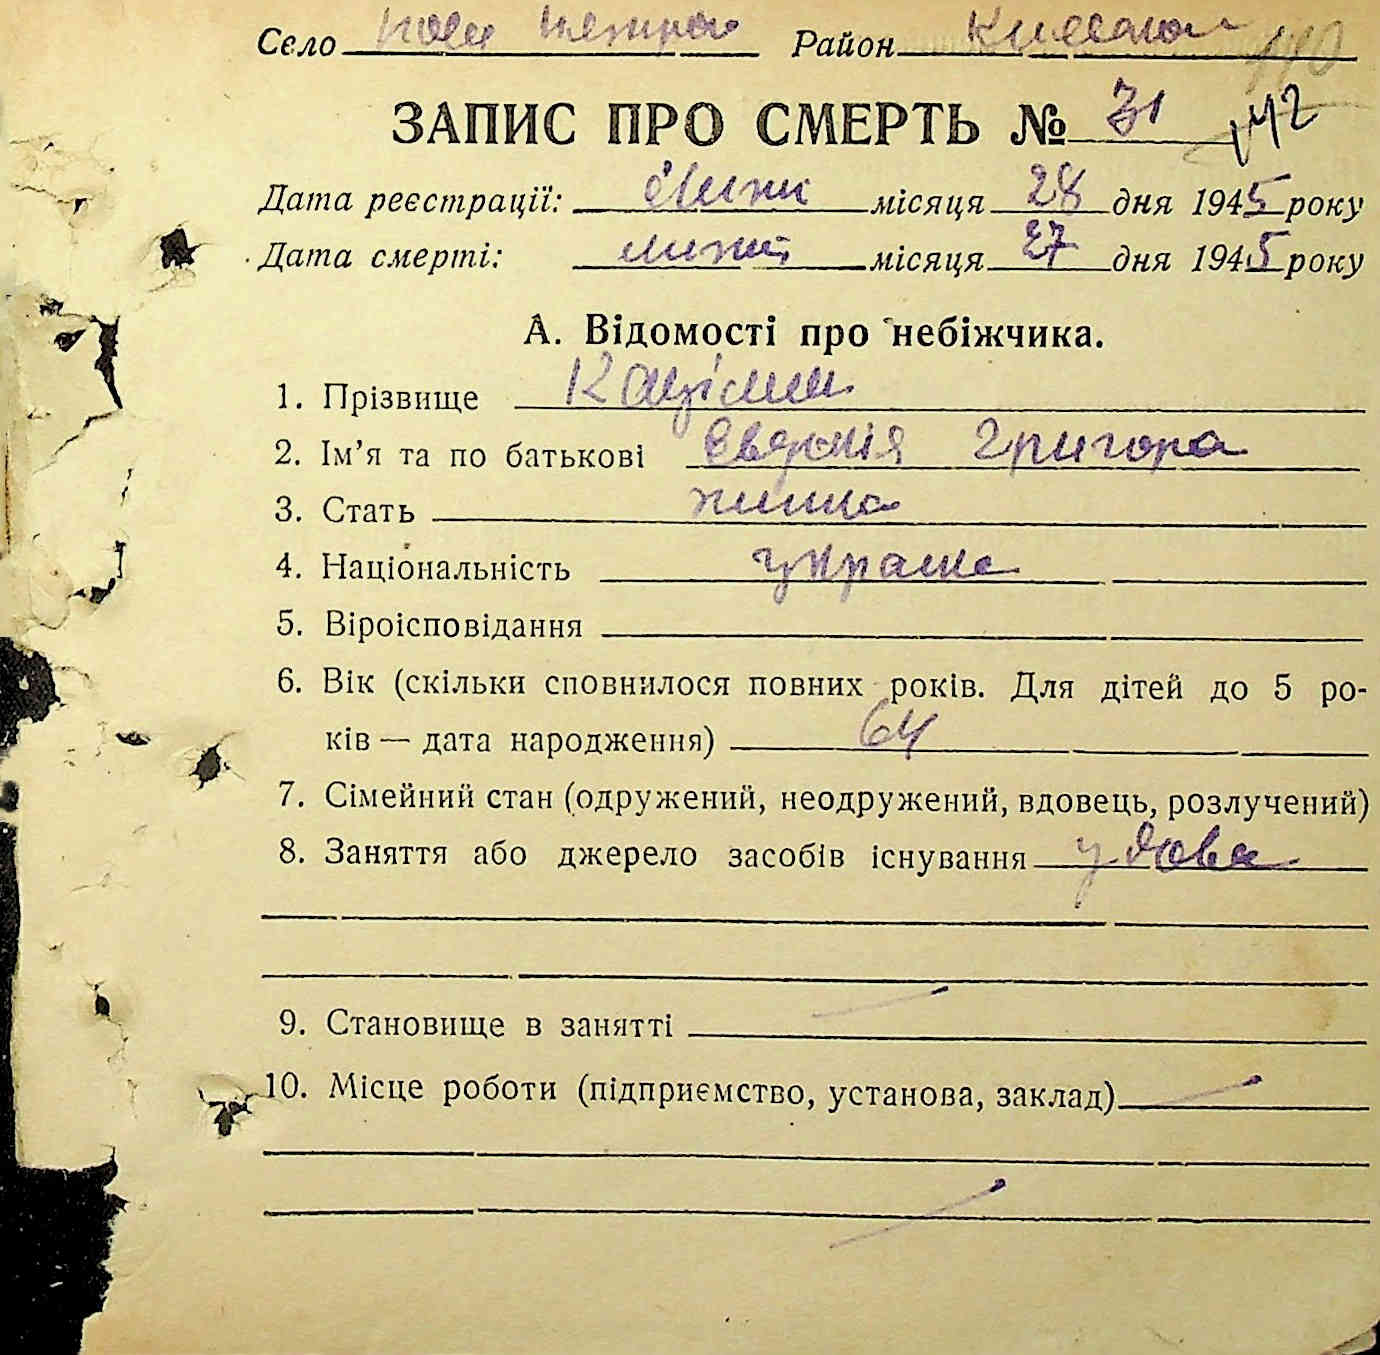 Село Нові Петрів Район Київськ
ЗАПИС ПРО СМЕРТЬ № 31 142
Дата реєстрації: місяця 28 дня 1945 року
Дата смерті: місяця 27 дня 1945 року
А. Відомості про небіжчика.
1. Прізвище
2. Ім'я та по батькові Григора
3. Стать жинка
4. Національність украинка
5. Віроісповідання
6. Вік (скільки сповнилося повних років. Для дітей до 5 ро-
ків — дата народження) 64
7. Сімейний стан (одружений, неодружений, вдовець, розлучений)
8. Заняття або джерело засобів існування удова
9. Становище в занятті
10. Місце роботи (підприємство, установа, заклад)